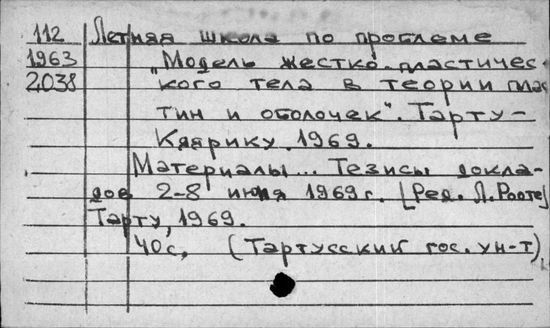 112 Летняя школа по проблеме
1963 „Модель жестко-пластичес-
2038 кого тела в теории плас
тин и оболочек". Тарту-
Кяэрику. 1969.
Материалы... Тезисы докла-
дов 2-8 июля 1969 г. [Ред. Л. Роотс]
Тарту, 1969.
40 с. (Тартусский гос. ун-т).